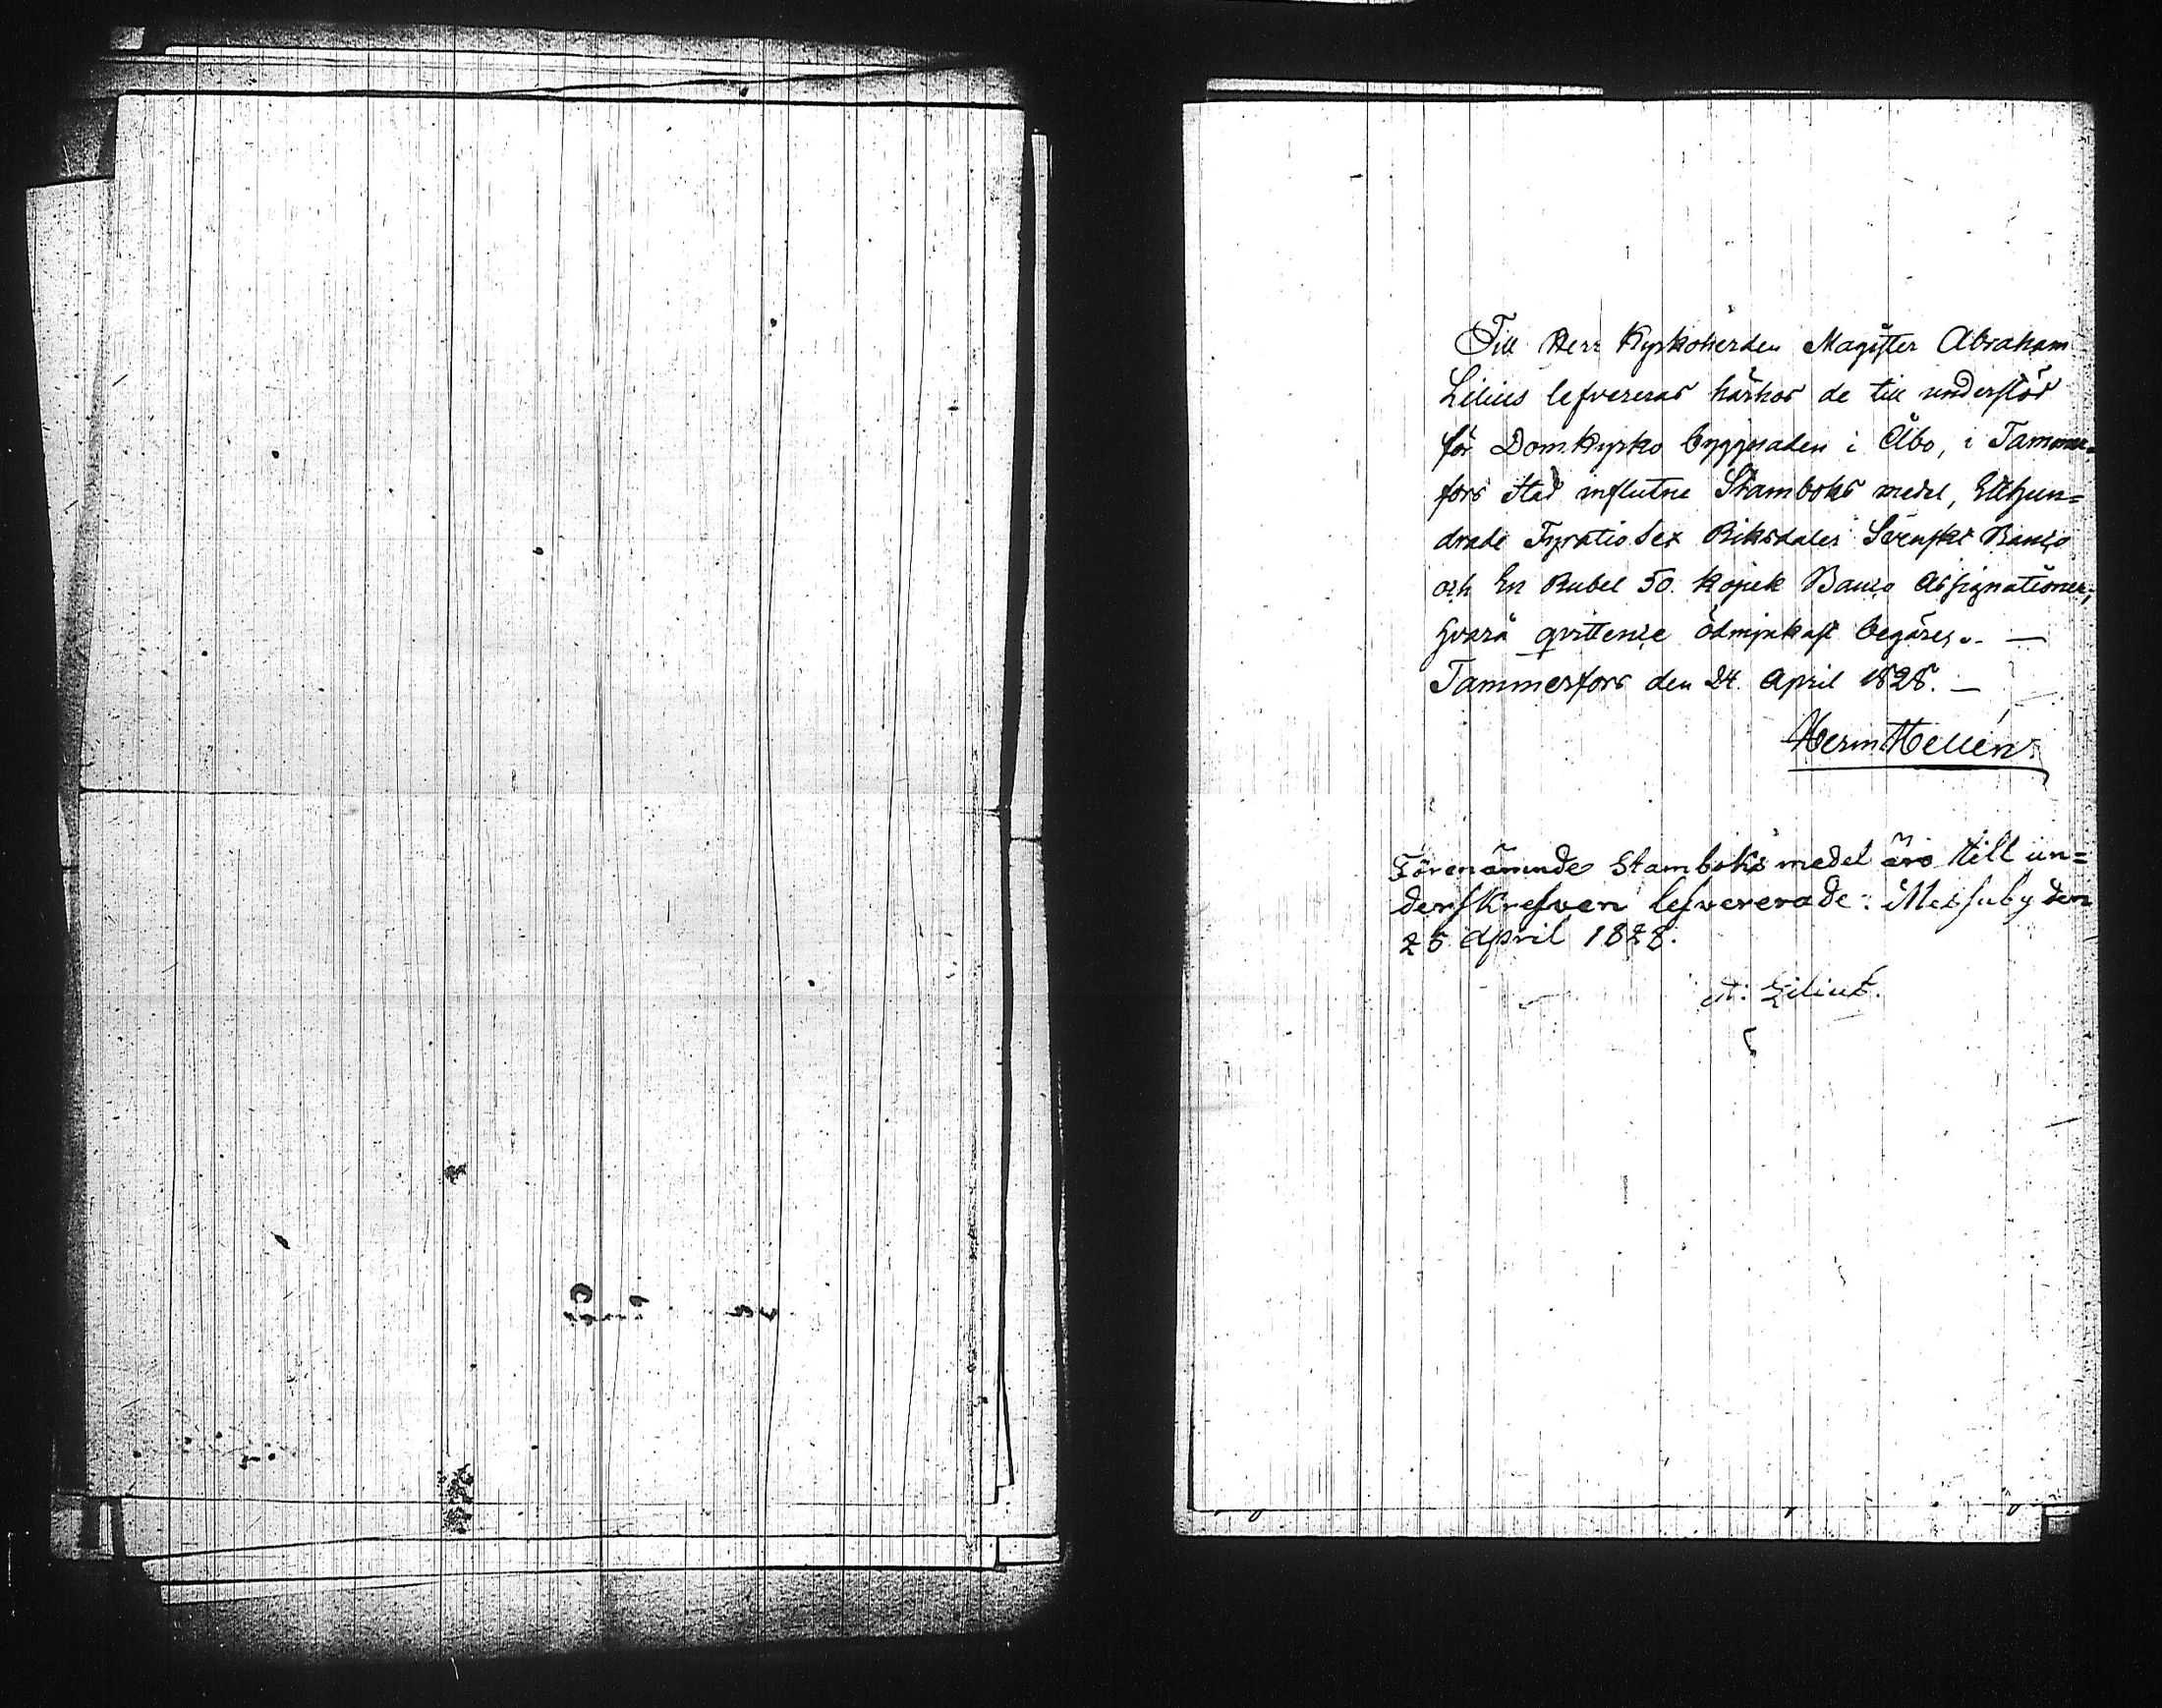 Till Herr Kyrkoherden Magister Abraham
Lilius lefvereras härhos de till understöd
för Domkyrko byggnaden i Åbo, i Tammer-
fors stad influtne Stamboks medel, Etthun=
drade Fyratio Sex Riksdaler Svenskt Banco
och En Rubel 50. Kopek Banco Assignationer;
hvarå qvittence ödmjukast begäres. —
Tammerfors den 24. April 1828. —
Herm Hellén.
Förenämnde Stamboks medel äro till un=
derskrefven lefvererade: Messuby den
25 April 1828.
A: Lilius.